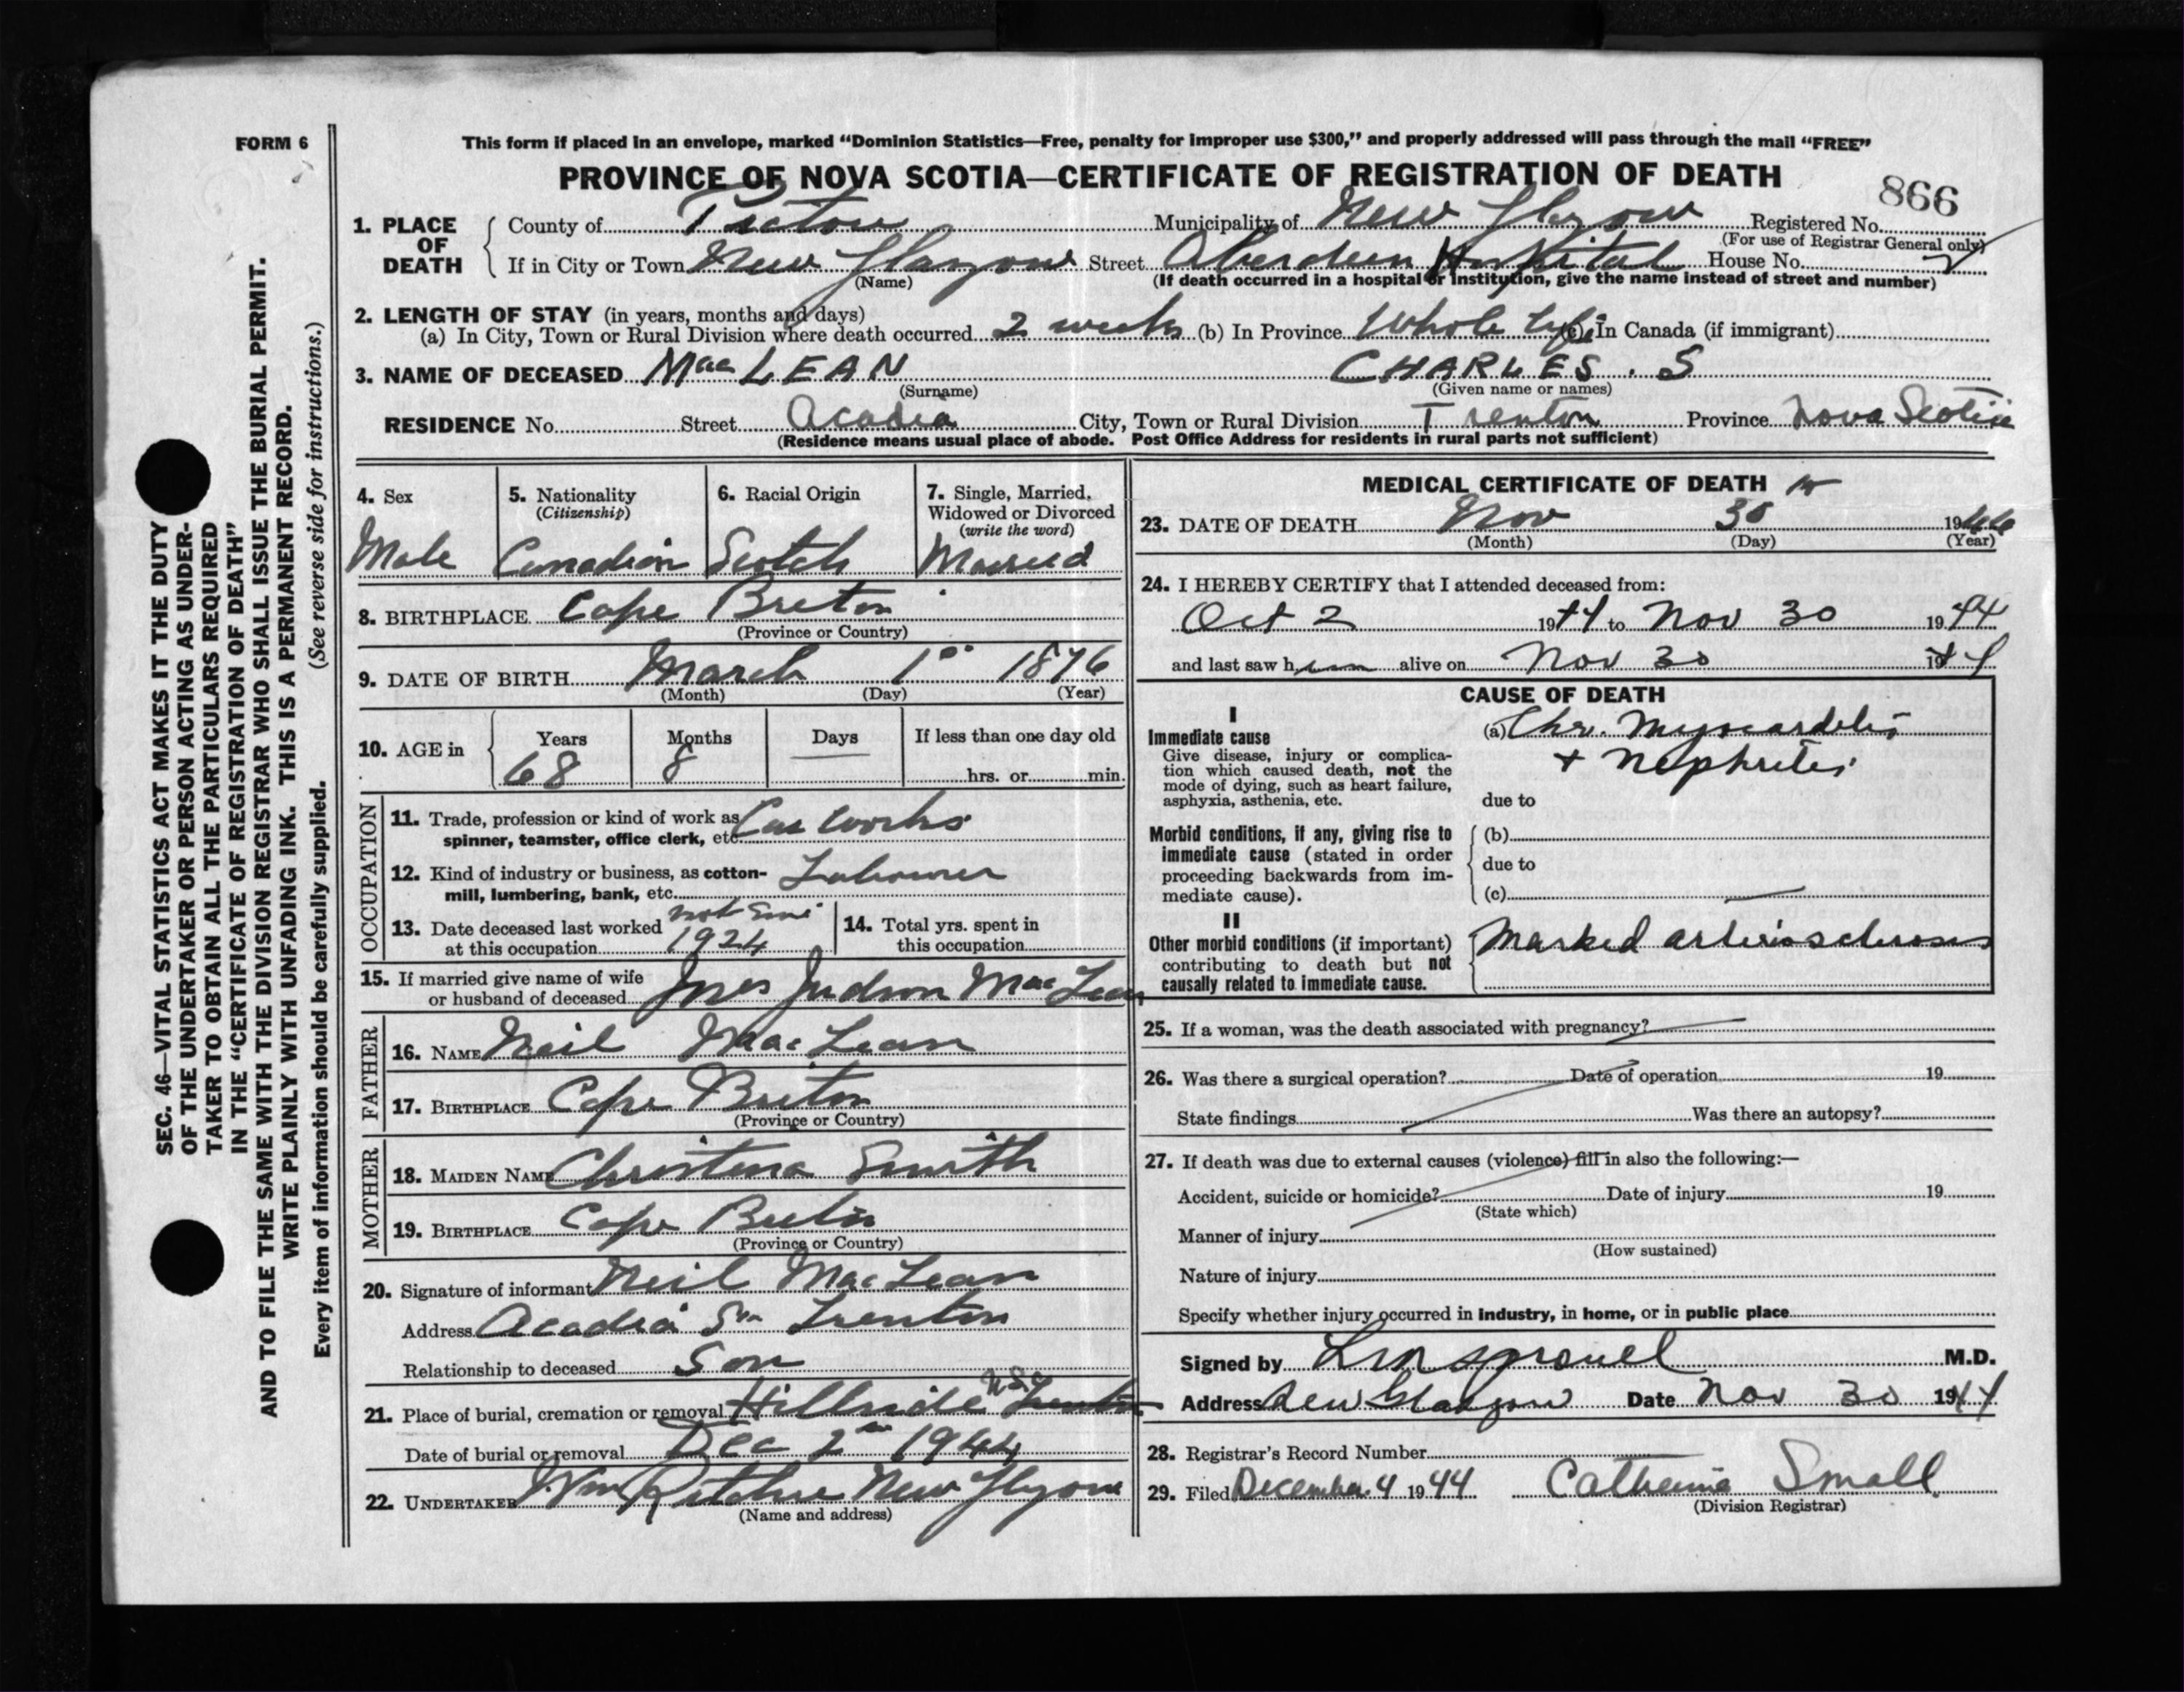 FORM 6
This form if placed in an envelope, marked “Dominion Statistics—Free, penalty for improper use $300,” and properly addressed will pass through the mail “FREE”
PROVINCE OF NOVA SCOTIA—CERTIFICATE OF REGISTRATION OF DEATH
866
1. PLACE OF DEATH
County of Pictou Municipality of New Glasgow Registered No.
(For use of Registrar General only)
If in City or Town New Glasgow Street Aberdeen Hospital House No.
(Name)
(If death occurred in a hospital or institution, give the name instead of street and number)
2. LENGTH OF STAY (in years, months and days)
(a) In City, Town or Rural Division where death occurred 2 weeks (b) In Province Whole Life (c) In Canada (if immigrant)
3. NAME OF DECEASED MacLEAN CHARLES. S
(Surname) (Given name or names)
RESIDENCE No. Street Acadia City, Town or Rural Division Trenton Province Nova Scotia
(Residence means usual place of abode. Post Office Address for residents in rural parts not sufficient)
4. Sex
Male
5. Nationality
(Citizenship)
Canadian
6. Racial Origin
Scotch
7. Single, Married,
Widowed or Divorced
(write the word)
Married
8. BIRTHPLACE Cape Breton
(Province or Country)
9. DATE OF BIRTH March 1st 1876
(Month) (Day) (Year)
10. AGE in
Years Months Days If less than one day old
68 8 — hrs. or min.
OCCUPATION
11. Trade, profession or kind of work as Car Works
spinner, teamster, office clerk, etc.
12. Kind of industry or business, as cotton- Labourer
mill, lumbering, bank, etc.
13. Date deceased last worked not since
at this occupation 1924
14. Total yrs. spent in
this occupation
15. If married give name of wife
or husband of deceased Judson MacLean
FATHER
16. NAME Neil MacLean
17. BIRTHPLACE Cape Breton
(Province or Country)
MOTHER
18. MAIDEN NAME Christena Smith
19. BIRTHPLACE Cape Breton
(Province or Country)
20. Signature of informant Neil MacLean
Address Acadia St Trenton
Relationship to deceased Son
21. Place of burial, cremation or removal Hillside Trenton N.S.
Date of burial or removal Dec 2nd 1944
22. UNDERTAKER Wm Ritchie New Glasgow
(Name and address)
MEDICAL CERTIFICATE OF DEATH
23. DATE OF DEATH Nov 30 1944
(Month) (Day) (Year)
24. I HEREBY CERTIFY that I attended deceased from:
Oct 2 1944 to Nov 30 1944
and last saw him alive on Nov 30 1944
CAUSE OF DEATH
I
Immediate cause
Give disease, injury or complica-
tion which caused death, not the
mode of dying, such as heart failure,
asphyxia, asthenia, etc.
(a) Chr. Myocarditis
+ Nephritis
due to
Morbid conditions, if any, giving rise to
immediate cause (stated in order
proceeding backwards from im-
mediate cause).
(b)
due to
(c)
II
Other morbid conditions (if important)
contributing to death but not
causally related to immediate cause.
Marked arteriosclerosis
25. If a woman, was the death associated with pregnancy?
26. Was there a surgical operation? Date of operation 19
State findings Was there an autopsy?
27. If death was due to external causes (violence) fill in also the following:—
Accident, suicide or homicide? Date of injury 19
(State which)
Manner of injury
(How sustained)
Nature of injury
Specify whether injury occurred in industry, in home, or in public place
Signed by M.D.
Address New Glasgow Date Nov 30 1944
28. Registrar's Record Number
29. Filed December 4 1944 Small
(Division Registrar)
SEC. 46—VITAL STATISTICS ACT MAKES IT THE DUTY
OF THE UNDERTAKER OR PERSON ACTING AS UNDER-
TAKER TO OBTAIN ALL THE PARTICULARS REQUIRED
IN THE “CERTIFICATE OF REGISTRATION OF DEATH”
AND TO FILE THE SAME WITH THE DIVISION REGISTRAR WHO SHALL ISSUE THE BURIAL PERMIT.
WRITE PLAINLY WITH UNFADING INK. THIS IS A PERMANENT RECORD.
Every item of information should be carefully supplied. (See reverse side for instructions.)